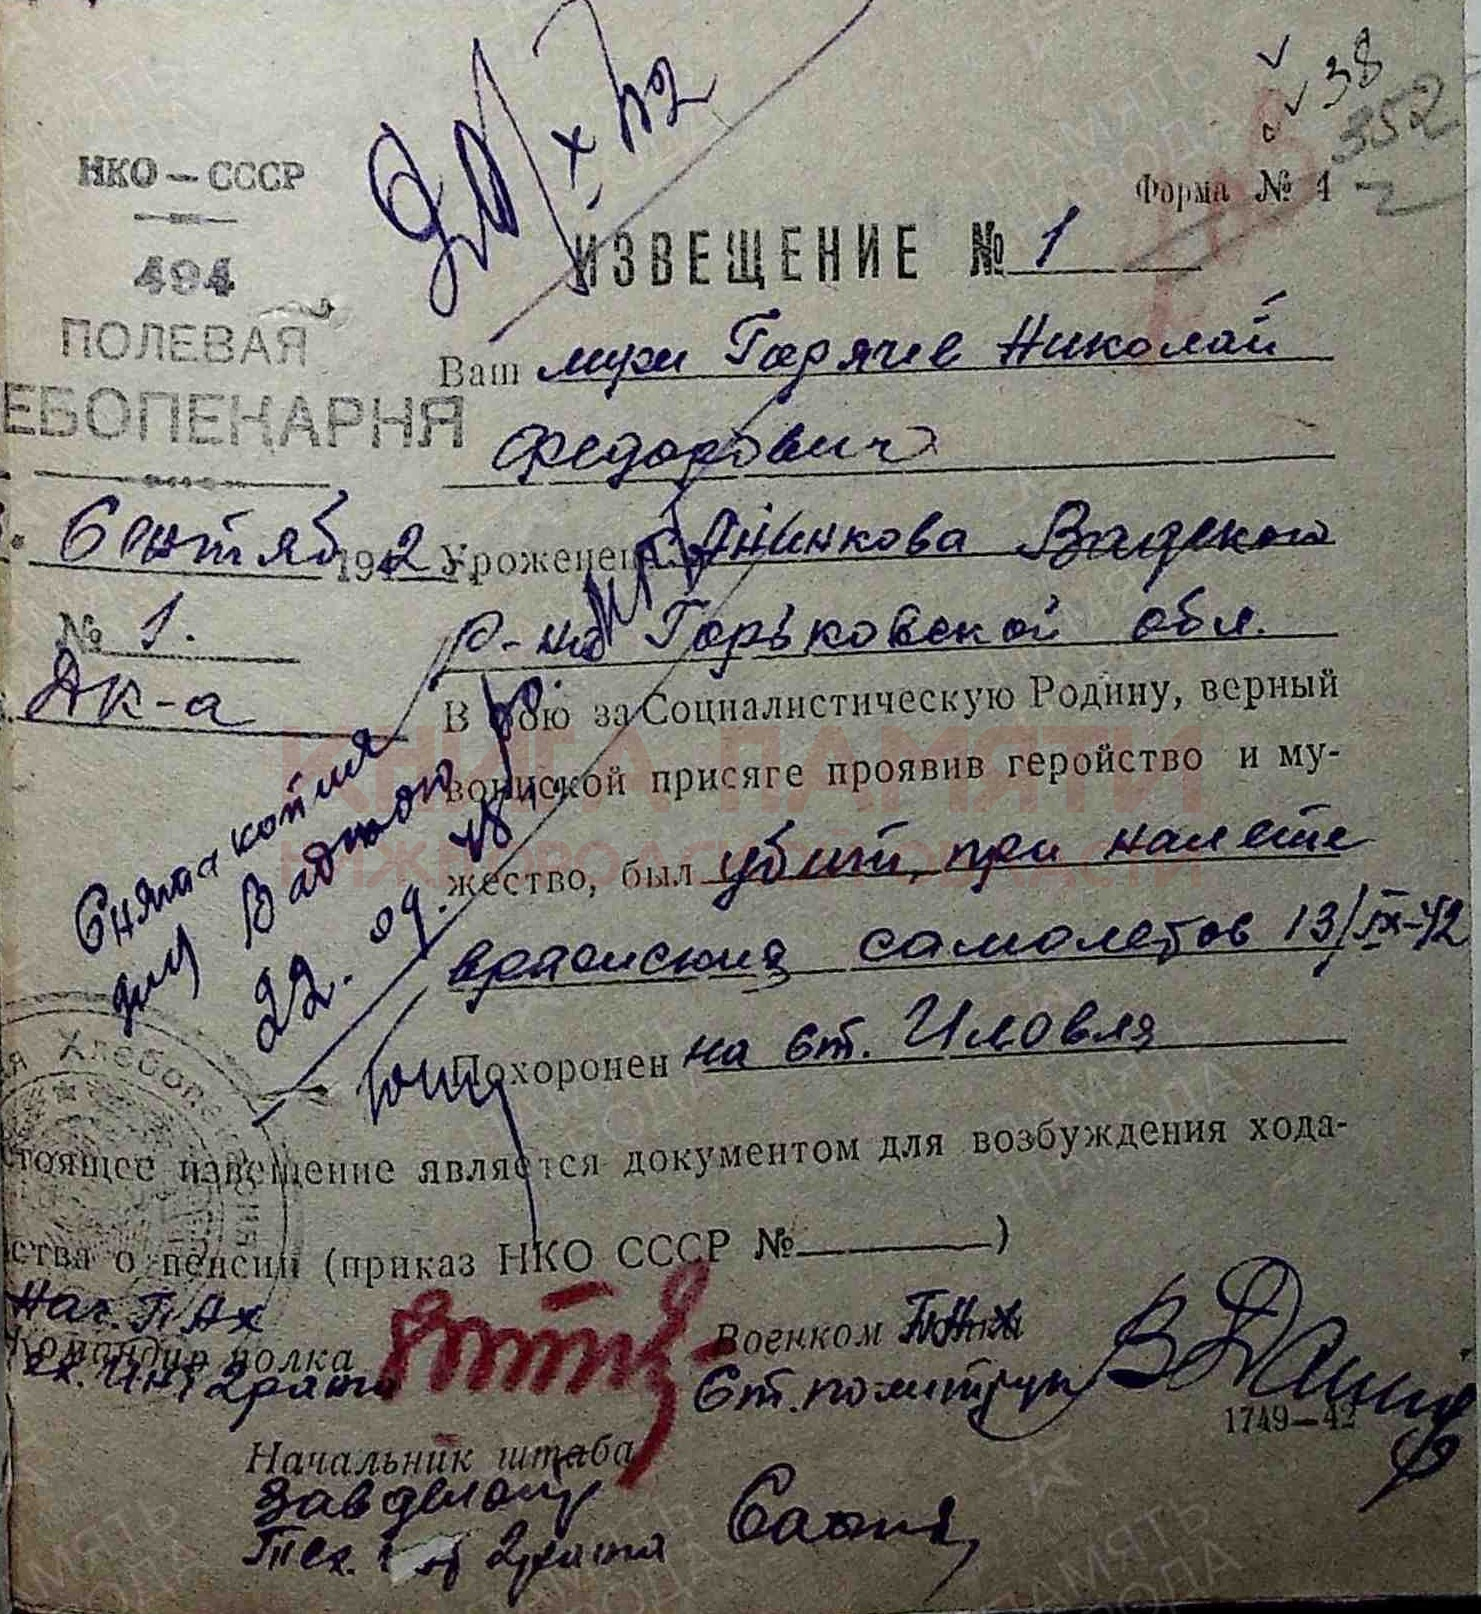 38
352
НКО — СССР
Форма № 4
494
ИЗВЕЩЕНИЕ № 1
ПОЛЕВАЯ
ЕБОПЕКАРНЯ
Ваш муж Горячев Николай
Федорович
Сентяб 1942
Уроженец с. Аникова Вадского
№ 1.
р-на Горьковской обл.
В бою за Социалистическую Родину, верный
воинской присяге проявив геройство и му-
жество, был убит, при налете
вражеских самолетов 13/IX-42
Похоронен на ст. Иловля
Снята копия
для Вадского
22. 09.
тоящее извещение является документом для возбуждения хода-
ства о пенсии (приказ НКО СССР № )
Нач. ПАХ
Командир полка
Военком ПАХ
Инт 2 ранга
Ст. политрук
1749—42
Начальник штаба
Завделопр
Тех. 2 ранга
КНИГА ПАМЯТИ
НИЖЕГОРОДСКОЙ ОБЛАСТИ
ПАМЯТЬ НАРОДА